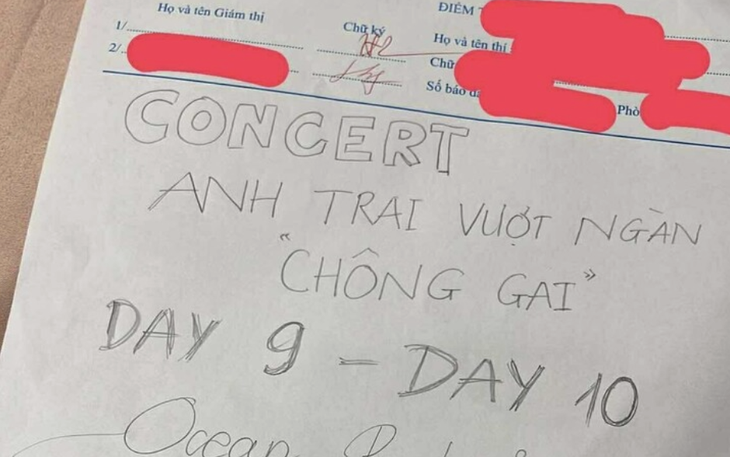 Họ và tên Giám thị
Chữ ký
ĐIỂM
1/
Họ và tên thí
2/
Chữ
Số báo
Phò
CONCERT
ANH TRAI VƯỢT NGÀN
"CHÔNG GAI"
DAY 9 - DAY 10
Ocean